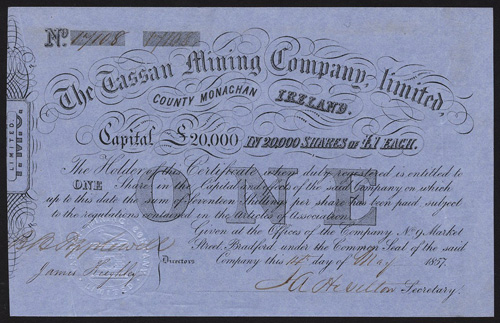 No. 17108 17108
The Tassan Mining Company, limited,
COUNTY MONAGHAN IRELAND.
Capital £20,000 IN 20,000 SHARES OF £1 EACH.
The Holder of this Certificate when duly registered is entitled to
ONE Share in the Capital and effects of the said Company on which
up to this date the sum of seventeen shillings per share has been paid, subject
to the regulations contained in the Articles of Association.
ONE
Given at the Offices of the Company No. 9, Market
Street, Bradford, under the Common Seal of the said
Directors Company this day of May 1857.
James
Secretary.
LIMITED.